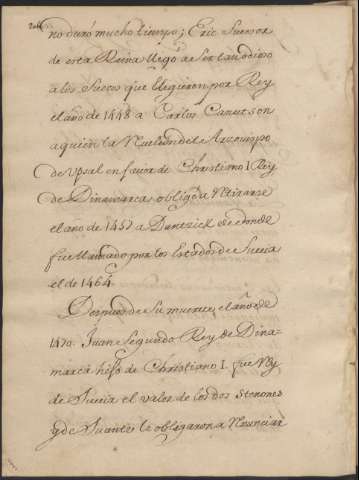 no duró mucho tiempo; Eric Sucesor
de esta Reina llegó a ser tan odioso
a los Suecos que eligieron por Rey
el año de 1448 a Carlos Canutson
a quien la del Arzovispo
de Upsal en favor de Christiano I Rey
de Dinamarca obligó a Retirarse
el año de 1457 a Dantzick de donde
fue llamado por los Estados de Suecia
el de 1464.
Despues de su muerte el año de
1470. Juan Segundo Rey de Dina-
marca hijo de Christiano I. fue Rey
de Suecia el valor de los dos Stenones
y de Suante le obligaron a Renunciar